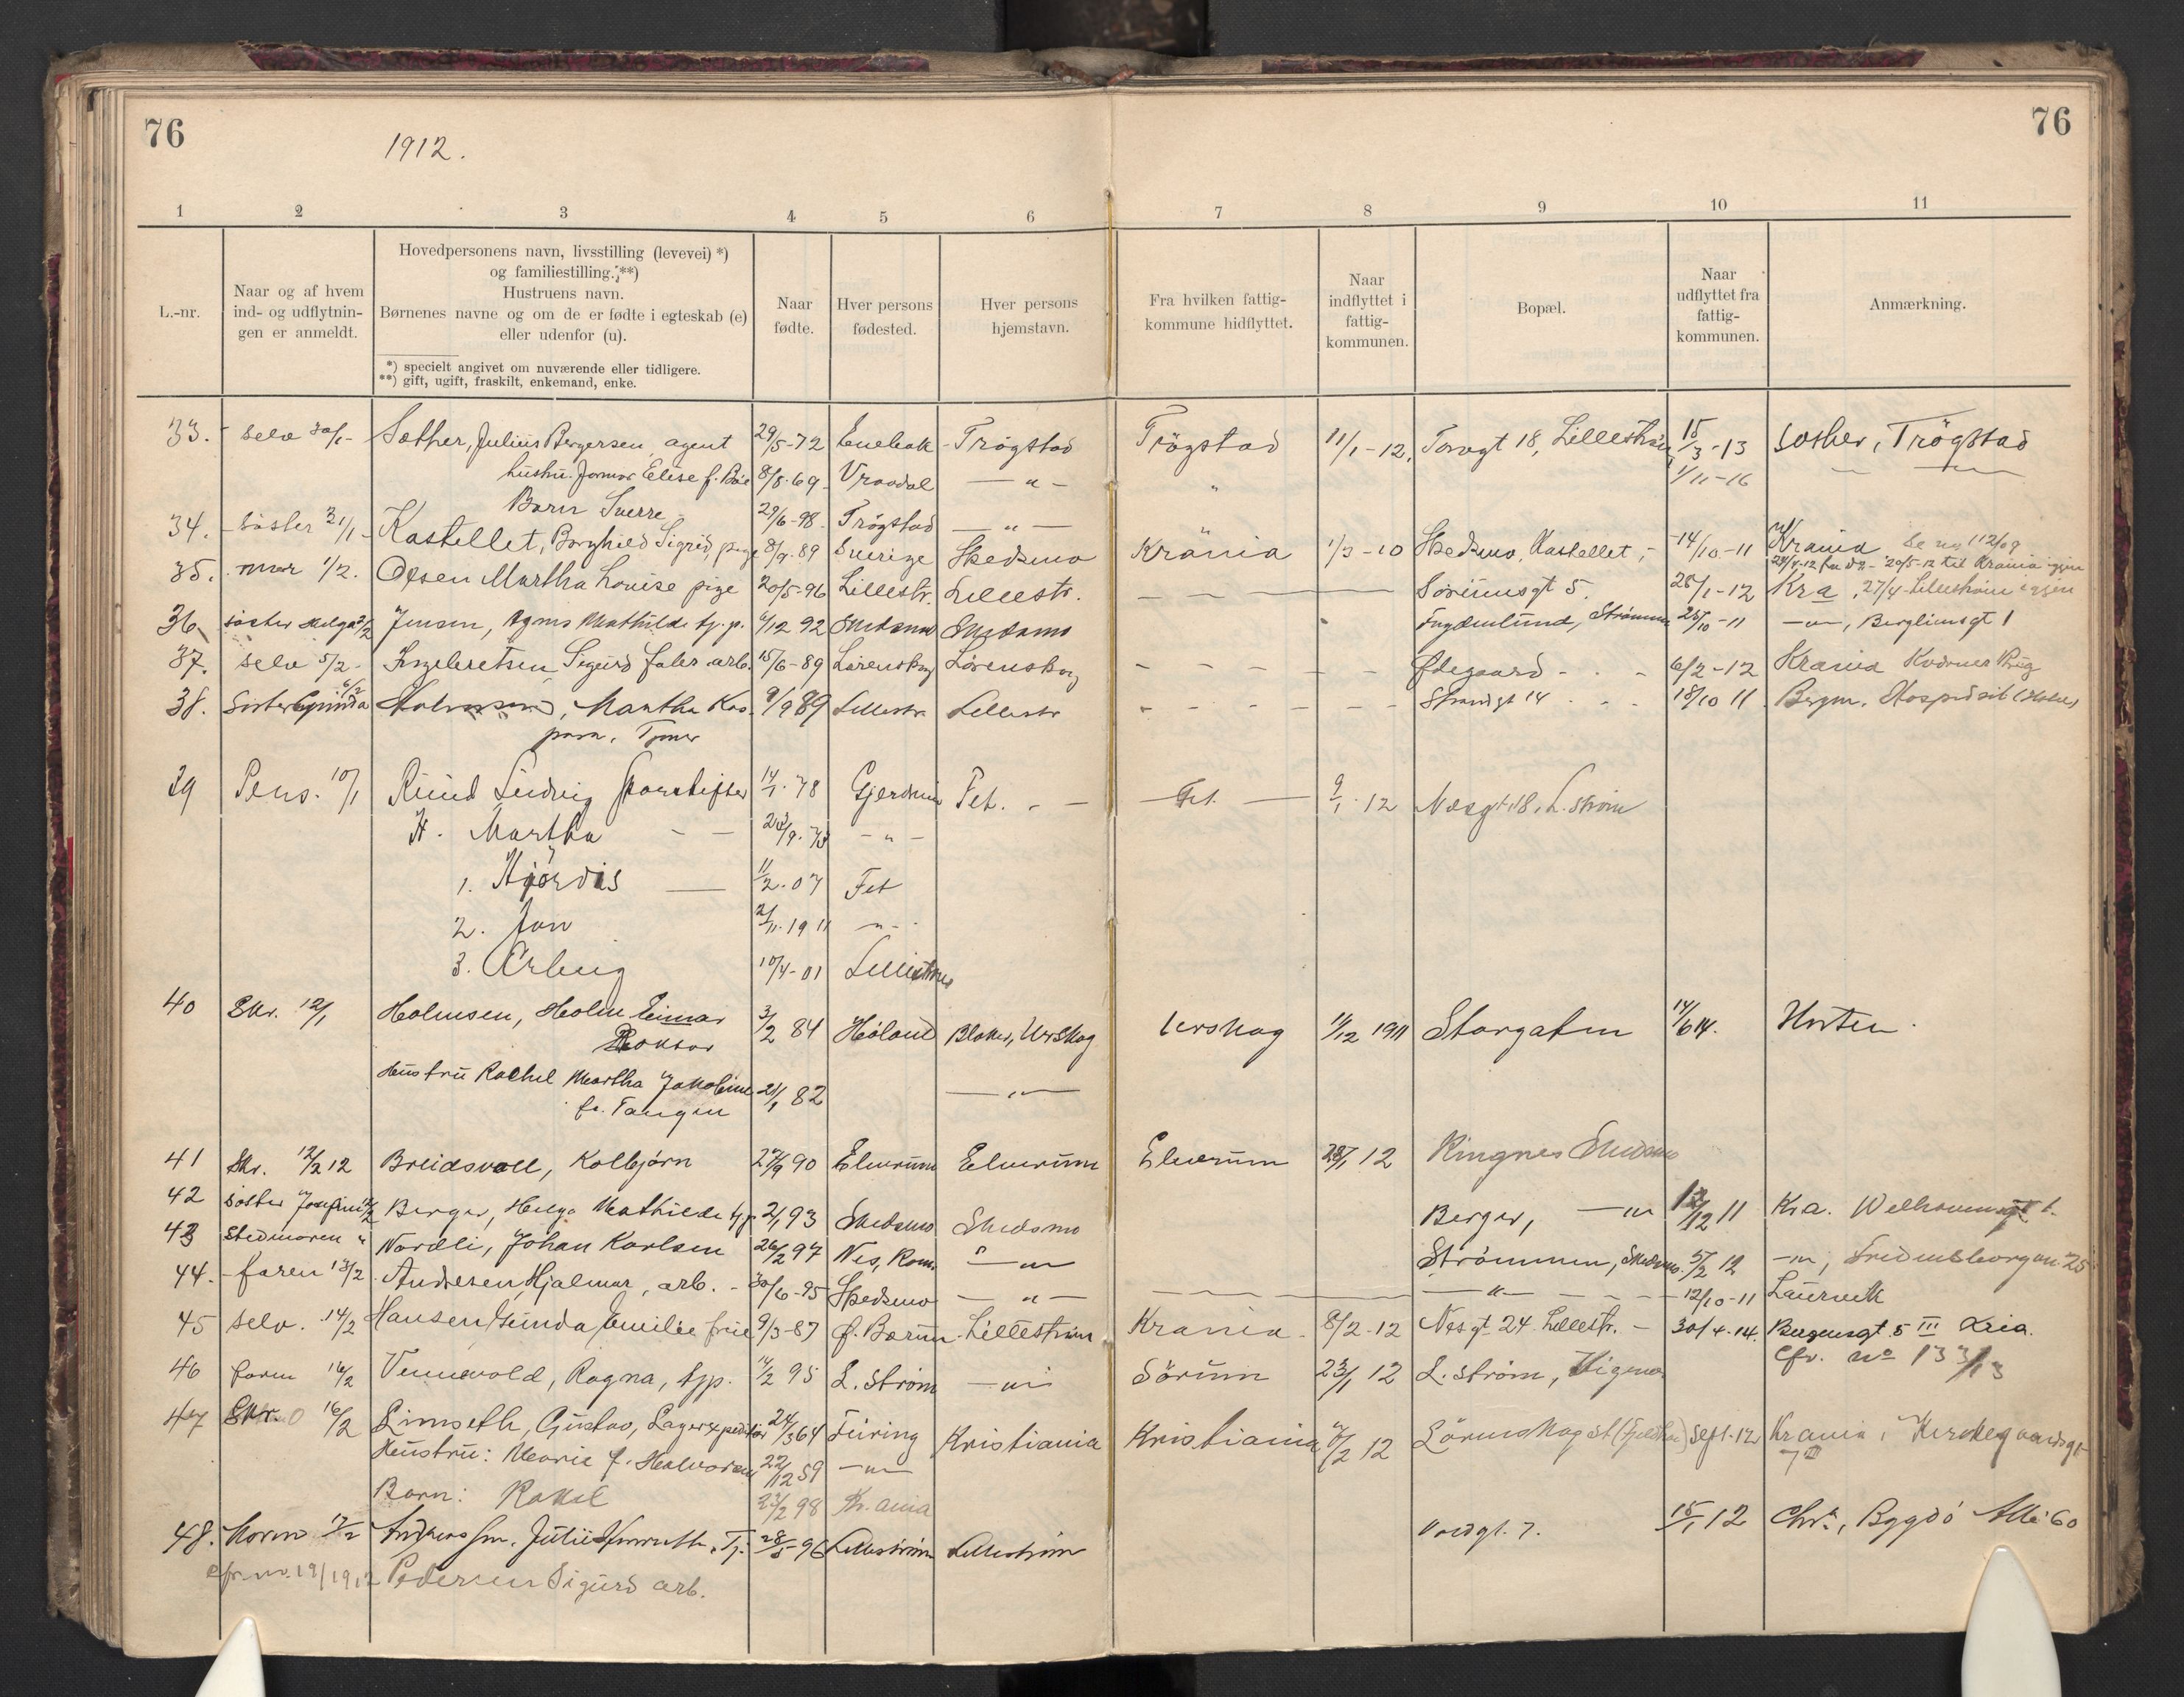 76
76
1912.
1 2 3 4 5 6 7 8 9 10 11
L.-nr.
Naar og af hvem
ind- og udflytnin-
gen er anmeldt.
Hovedpersonens navn, livsstilling (levevei) *)
og familiestilling. **)
Hustruens navn.
Børnenes navne og om de er fødte i egteskab (e)
eller udenfor (u).
*) specielt angivet om nuværende eller tidligere.
**) gift, ugift, fraskilt, enkemand, enke.
Naar
fødte.
Hver persons
fødested.
Hver persons
hjemstavn.
Fra hvilken fattig-
kommune hidflyttet.
Naar
indflyttet i
fattig-
kommunen.
Bopæl.
Naar
udflyttet fra
fattig-
kommunen.
Anmærkning.
33. selv 30/1- Sæther, Julius Bergersen agent 29/5-72 Enebak Trøgstad Trögstad 11/1-12. Torvgt 18, Lillestrøm 15/3-13 Trögstad
hustru Elise f. 8/8-69 Vraadal — " — " 1/11-16
Barn Sverre 29/6-98. Trögstad — " —
34. søster 31/1- Kastellet, Borghild Sigrid, pige 8/9-89 Sverige Skedsmo Krania 1/3-10 Skedsmo, Kastellet, - 14/10-11 Krania Se no 112/09
35. mor 1/2. Olsen Martha Louise pige 20/5-96 Lillestr. Lillestr. Sørumsgt 5. 28/1-12 Kra, 27/4 Lillestrøm igjen
36. søster Helga 3/2 Jensen, Agnes Mathilde tj.p. 4/12 92 Skedsmo Skedsmo Strømmen 25/10-11 — " —, Bergliensgt 1
37. selv 5/2- Ingebretsen Sigurd arb. 15/6-89 Lørenskog Lørenskog Ødegaard - 6/2-12 Krania
38. Søster 6/2 Martha 9/9 89 Lillestr Lillestr Strandgt 14 18/10 11
39 Pens. 10/1 Ruud Ludvig 14/1-78 Gjerdrum Fet. - — Fet. — 9/1-12 Næsgt 18, L.strøm
H. Martha — — — " —
1. Hjørdis — 11/2-07 Fet
2. Jon 2/11-1911 — " -
3. Erling 10/4-01 Lillestrøm
40 Skr. 12/1 Holmsen, Holm Einar 3/2 84 Høland Blaker, Urskog Urskog 11/12 1911 Storgaten 14/6 14. Horten.
Doktor
Hustru Rachel Martha Jakobine 21/1 82 — " —
f. Tangen
41 Skr. 12/2 12 Breidsvoll, Kolbjørn 27/9 90 Elverum Elverum Elverum 28/1 12 Ringnes Skedsmo
42 søster Josefine 12/2 Berger, Helga Mathilde tjp 2/1 93 Skedsmo Skedsmo Berger, — " 12/12 11 Kra.
43 Stedmoren " Nordli, Johan Karlsen 26/2 97 Nes, Rom. " — " Strømmen, Skedsmo. 5/2 12 — ", Fredensborgvn. 25
44. faren 13/2 Andresen, Hjalmar, arb. - 30/6-95 Skedsmo — " — — " — 12/10-11 Laurvik
45 selv. 14/2 Hansen, Gunda Emilie frue 9/3-87 Ø. Bærum Lillestrøm Krania - 8/2-12 Nesgt 24 Lillestr. - 30/4-14. Bergensgt. 5 III Kria.
cfr. no 133/13
46 faren 16/2 Vennevold, Ragna, tjp. 14/2 95 L. strøm — " — Sørum 23/1 12 L. strøm,
47 Skr. 16/2 Limseth, Gustav, Lagerexpeditør 24/3 64 Kristiania Kristiania 12 Lørenskog st Sept-12 Krania, Kirkegaardsgt
7 III
Hustru: Marie f. Halvorsen 22/12 59 — " —
Barn: Rakel 98 Kr.ania
48. Moren 17/2 Tj. 28/5 96 Lillestrøm Lillestrøm Voldgt. 7. 15/1 12 Chra, Bygdö Allé 60
cfr. nr. 19/1912 Pedersen Sigurd arb.